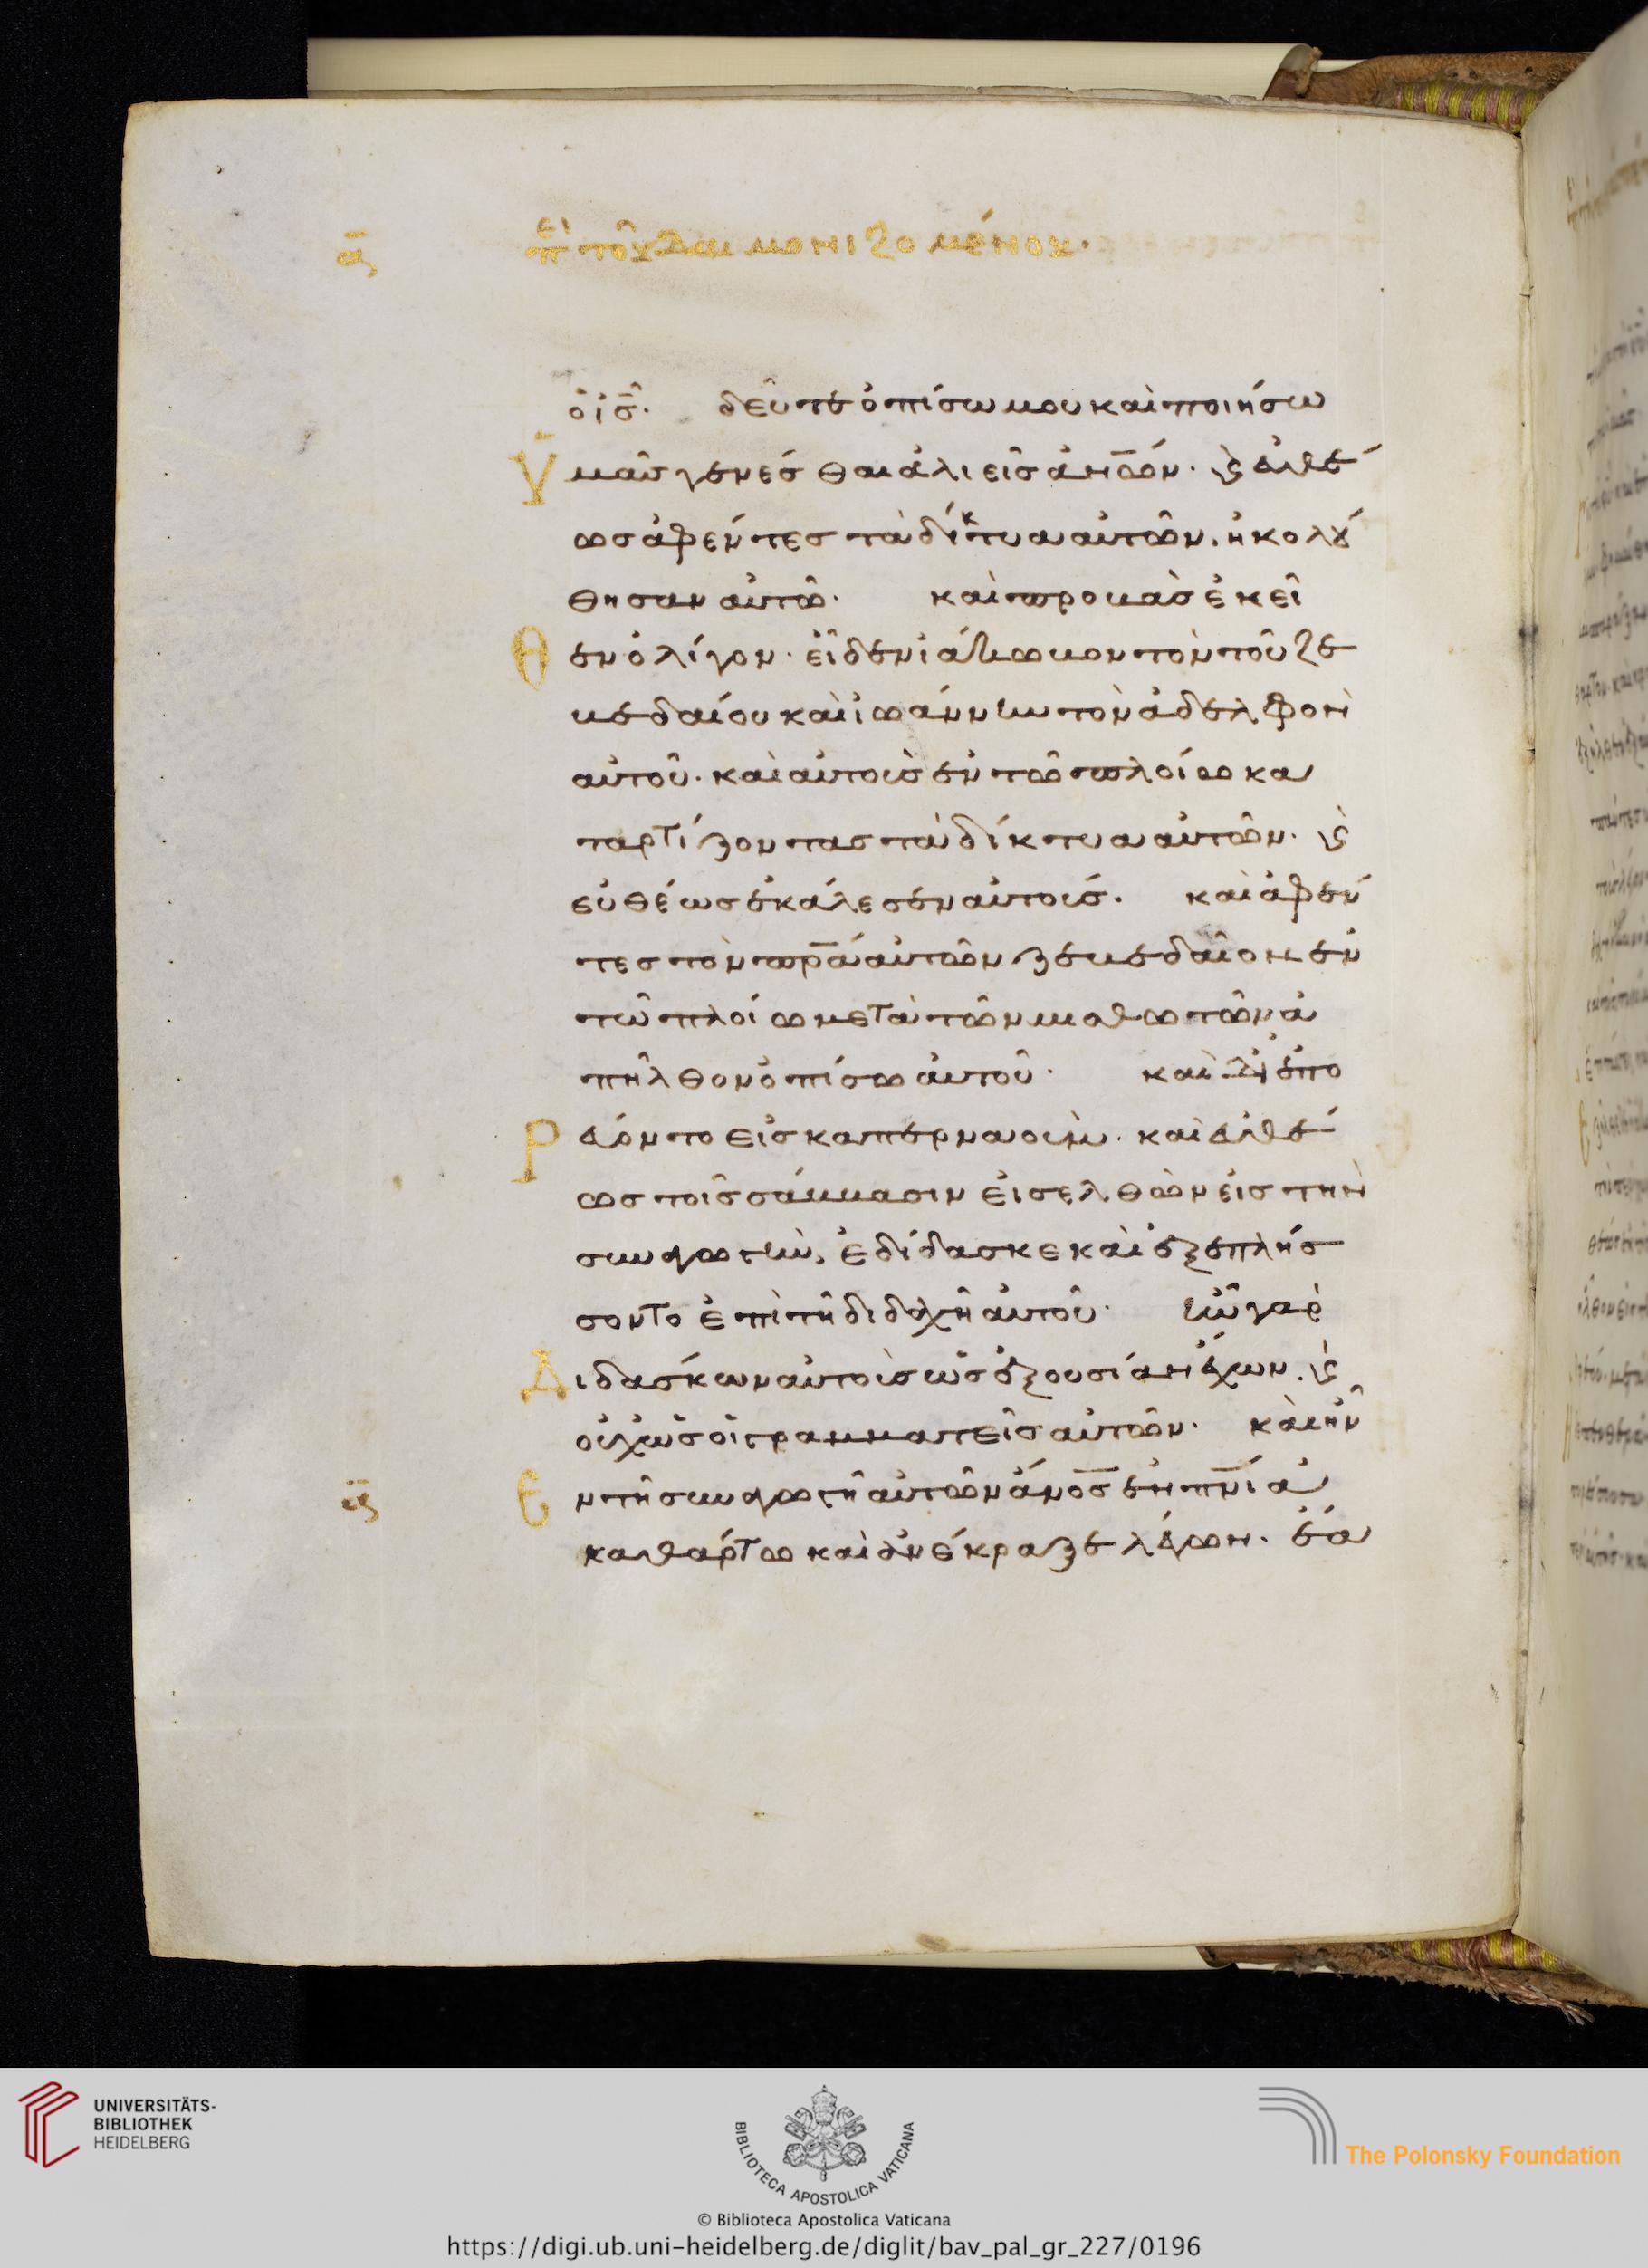 ᾱ περὶ τοῦ δαιμονιζομένου.
ὁ ι̅ς̅. δεῦτε ὀπίσω μου καὶ ποιήσω
ὑμᾶς γενέσθαι ἁλιεῖς α̅ν̅ω̅ν̅. ϗ εὐθέ
ως ἀφέντες τὰ δίκτυα αὐτῶν, ἠκολού
θησαν αὐτῶ. καὶ προβὰς ἐκεῖ
θεν ὀλίγον. εἶδεν ἰάκωβον τὸν τοῦ ζε
βεδαίου καὶ ἰωάννην τὸν ἀδελφὸν
αὐτοῦ. καὶ αὐτοὺς ἐν τῶ πλοίω κα
ταρτίζοντας τὰ δίκτυα αὐτῶν. ϗ
εὐθέως ἐκάλεσεν αὐτούς. καὶ ἀφέν
τες τὸν π̅ρ̅α̅ αὐτῶν ζεβεδαῖον ἐν
τῶ πλοίω μετὰ τῶν μισθωτῶν ἀ
πῆλθον ὀπίσω αὐτοῦ. καὶ εἰσπο
ρεύοντο εἰς καπερναούμ. καὶ εὐθέ
ως τοῖς σάββασιν εἰσελθὼν εἰς τὴν
συναγωγὴν, ἐδίδασκε καὶ ἐξεπλήσ
σοντο ἐπὶ τῆ διδαχῆ αὐτοῦ. ἦν γὰρ
διδάσκων αὐτοὺς ὡς ἐξουσίαν ἔχων. ϗ
οὐχ ὡς οἱ γραμματεῖς αὐτῶν. καὶ ἦν
ἐν τῆ συναγωγῆ αὐτῶν α̅ν̅ο̅ς̅ ἐν π̅ν̅ι̅ ἀ
ᾱ
καθάρτω καὶ ἀνέκραξε λέγων. ἔα
UNIVERSITÄTS-
BIBLIOTHEK
HEIDELBERG
BIBLIOTECA APOSTOLICA VATICANA
The Polonsky Foundation
© Biblioteca Apostolica Vaticana
https://digi.ub.uni-heidelberg.de/diglit/bav_pal_gr_227/0196